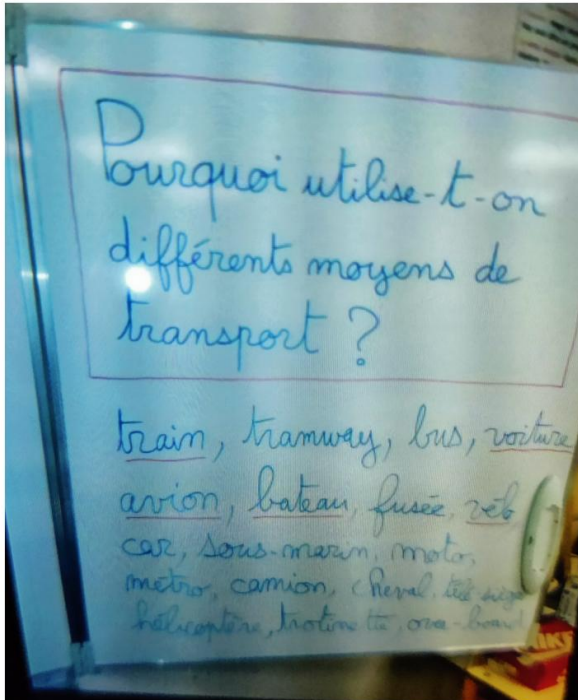 Pourquoi utilise-t-on
différents moyens de
transport ?
train, tramway, bus, voiture
avion, bateau, fusée, vélo
car, sous-marin, moto,
métro, camion, cheval, télé-siège
hélicoptère, trotinette, over-board